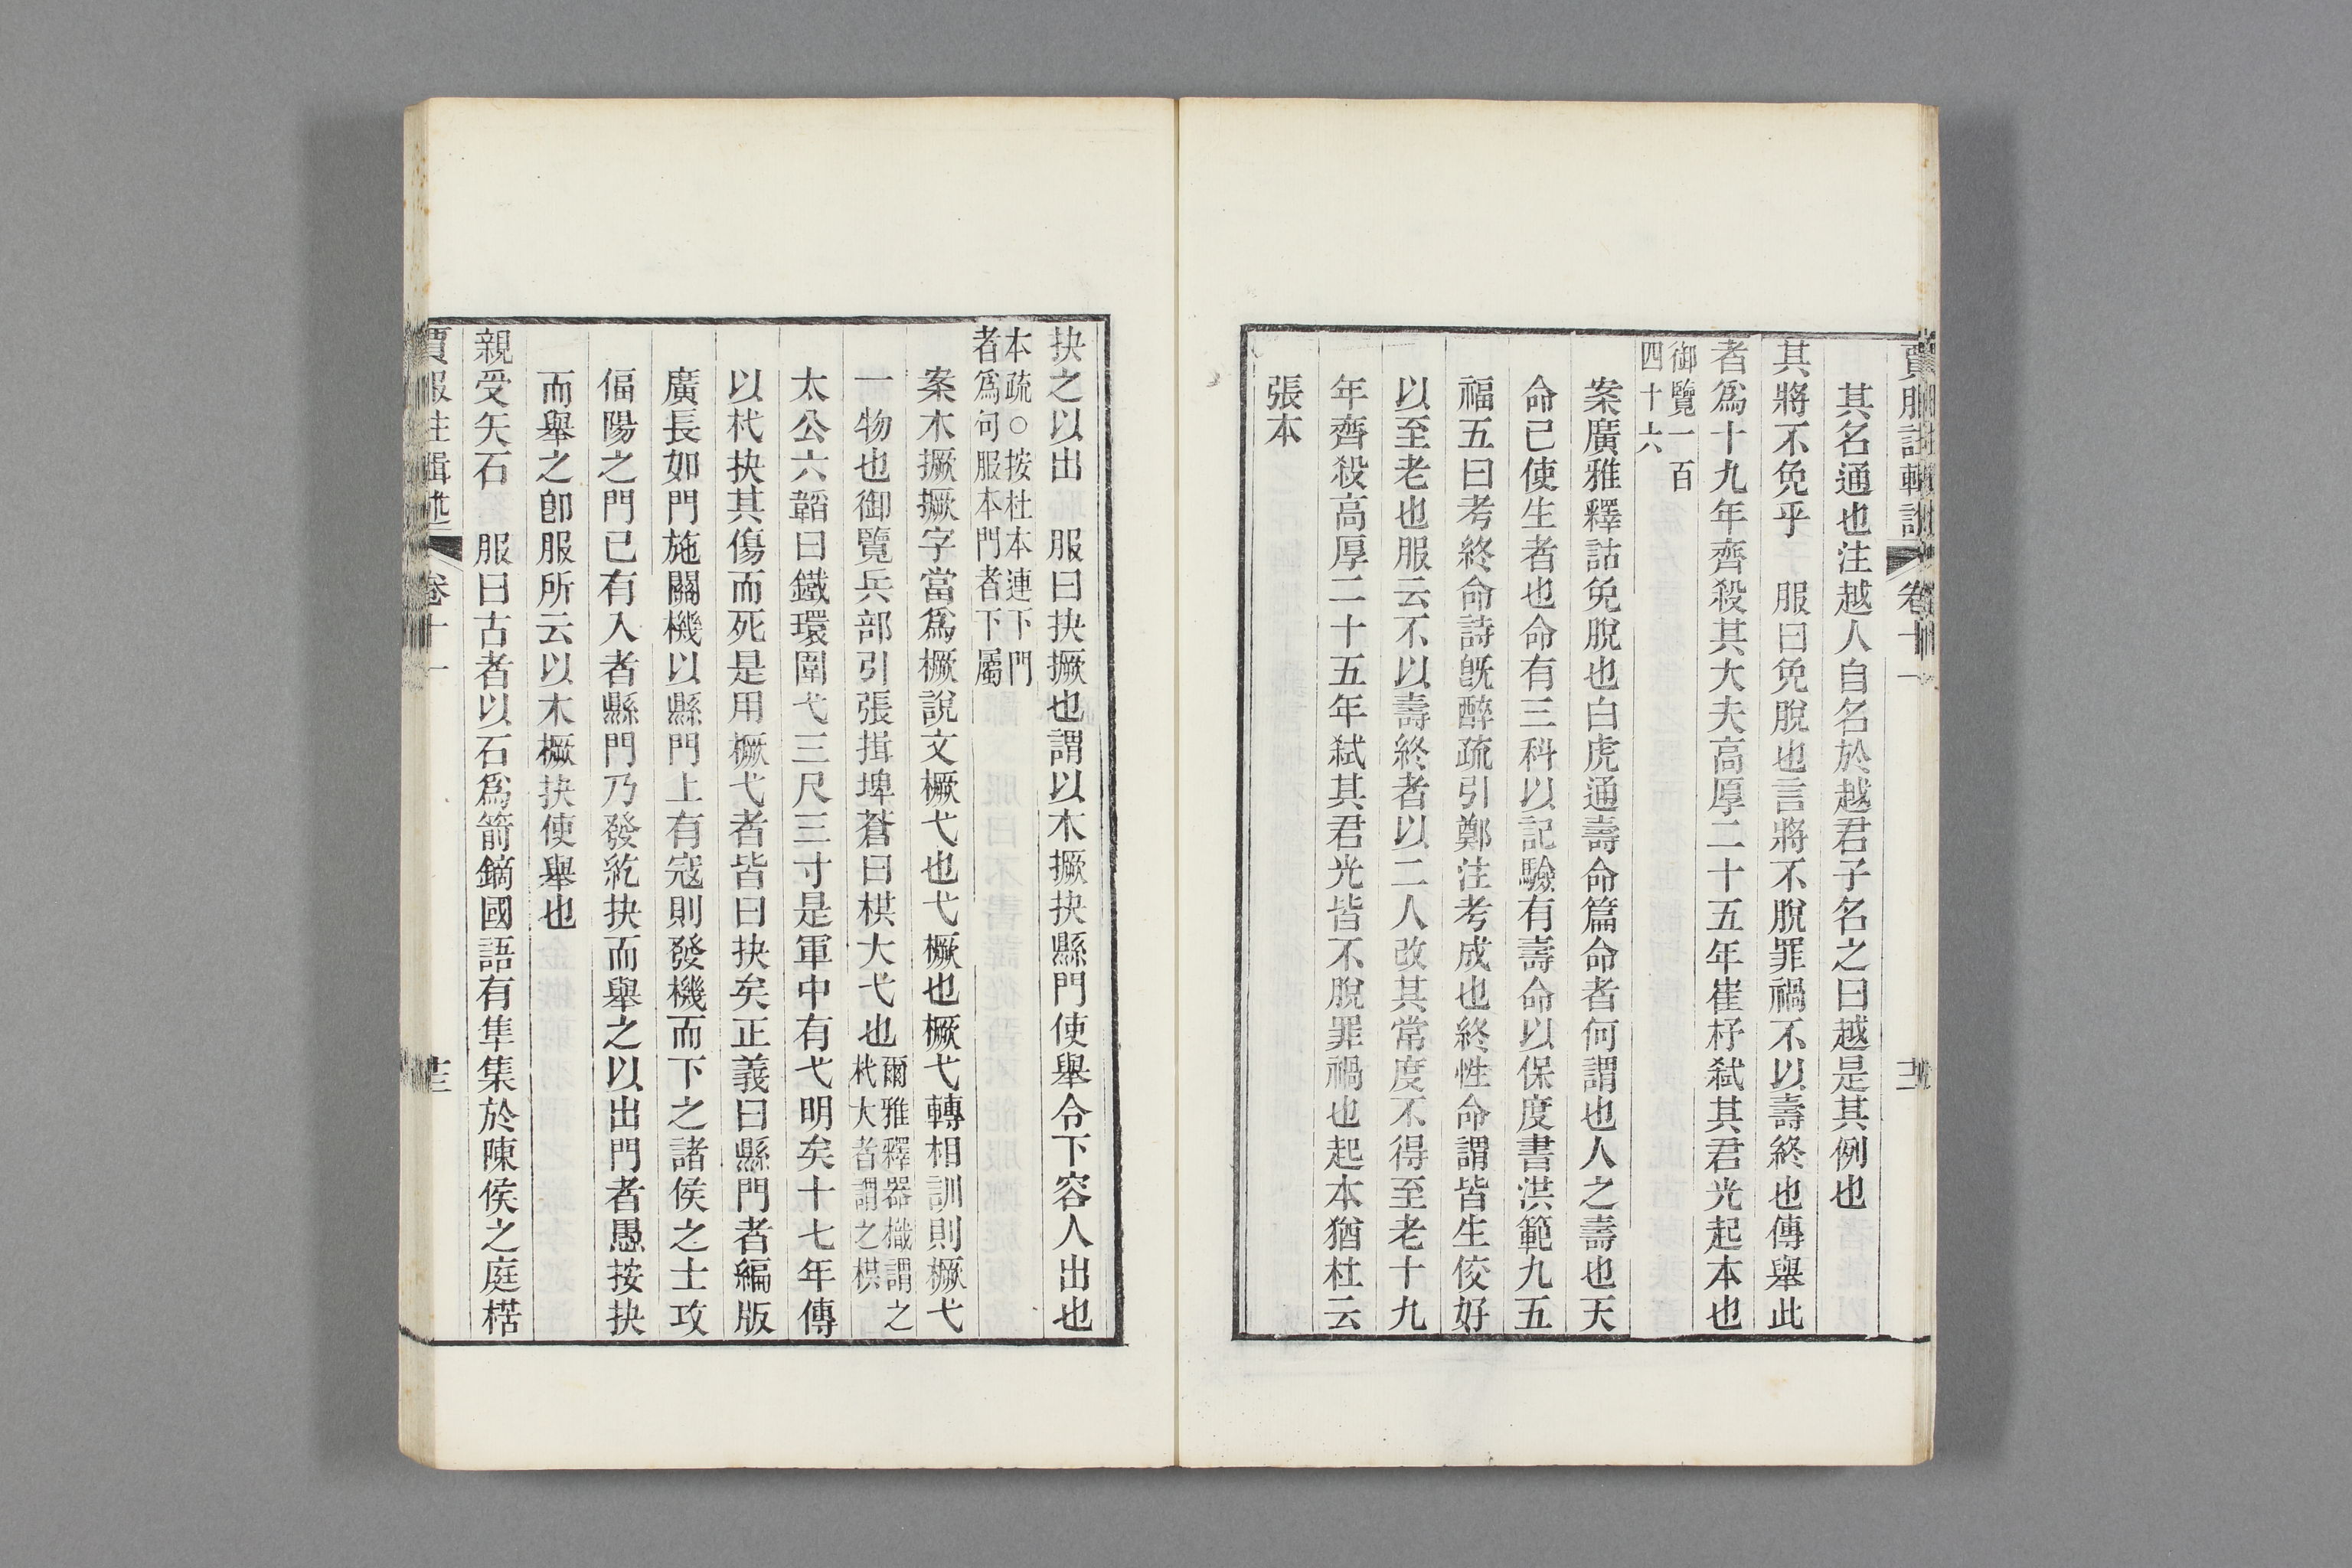 賈服注輯述 卷十一
其名通也注越人自名於越君子名之曰越是其例也
其將不免乎 服曰免脫也言將不脫罪禍不以壽終也傳舉此
者爲十九年齊殺其大夫高厚二十五年崔杼弑其君光起本也
御覽一百
四十六
案廣雅釋詁免脫也白虎通壽命篇命者何謂也人之壽也天
命已使生者也命有三科以記驗有壽命以保度書洪範九五
福五曰考終命詩旣醉疏引鄭注考成也終性命謂皆生佼好
以至老也服云不以壽終者以二人改其常度不得至老十九
年齊殺高厚二十五年弑其君光皆不脫罪禍也起本猶杜云
張本
抉之以出 服曰抉撅也謂以木撅抉縣門使舉令下容人出也
本疏○按杜本連下門
者爲句服本門者下屬
案木撅撅字當爲橛說文橛弋也弋橛也橛弋轉相訓則橛弋
一物也御覽兵部引張揖埤蒼曰栱大弋也爾雅釋器樴謂之
杙大者謂之栱
太公六韜曰鐵環圍弋三尺三寸是軍中有弋明矣十七年傳
以杙抉其傷而死是用橛弋者皆曰抉矣正義曰縣門者編版
廣長如門施關機以縣門上有寇則發機而下之諸侯之士攻
偪陽之門已有入者縣門乃發紇抉而舉之以出門者愚按抉
而舉之卽服所云以木橛抉使舉也
親受矢石 服曰古者以石爲箭鏑國語有隼集於陳侯之庭楛
賈服注輯述 卷十一